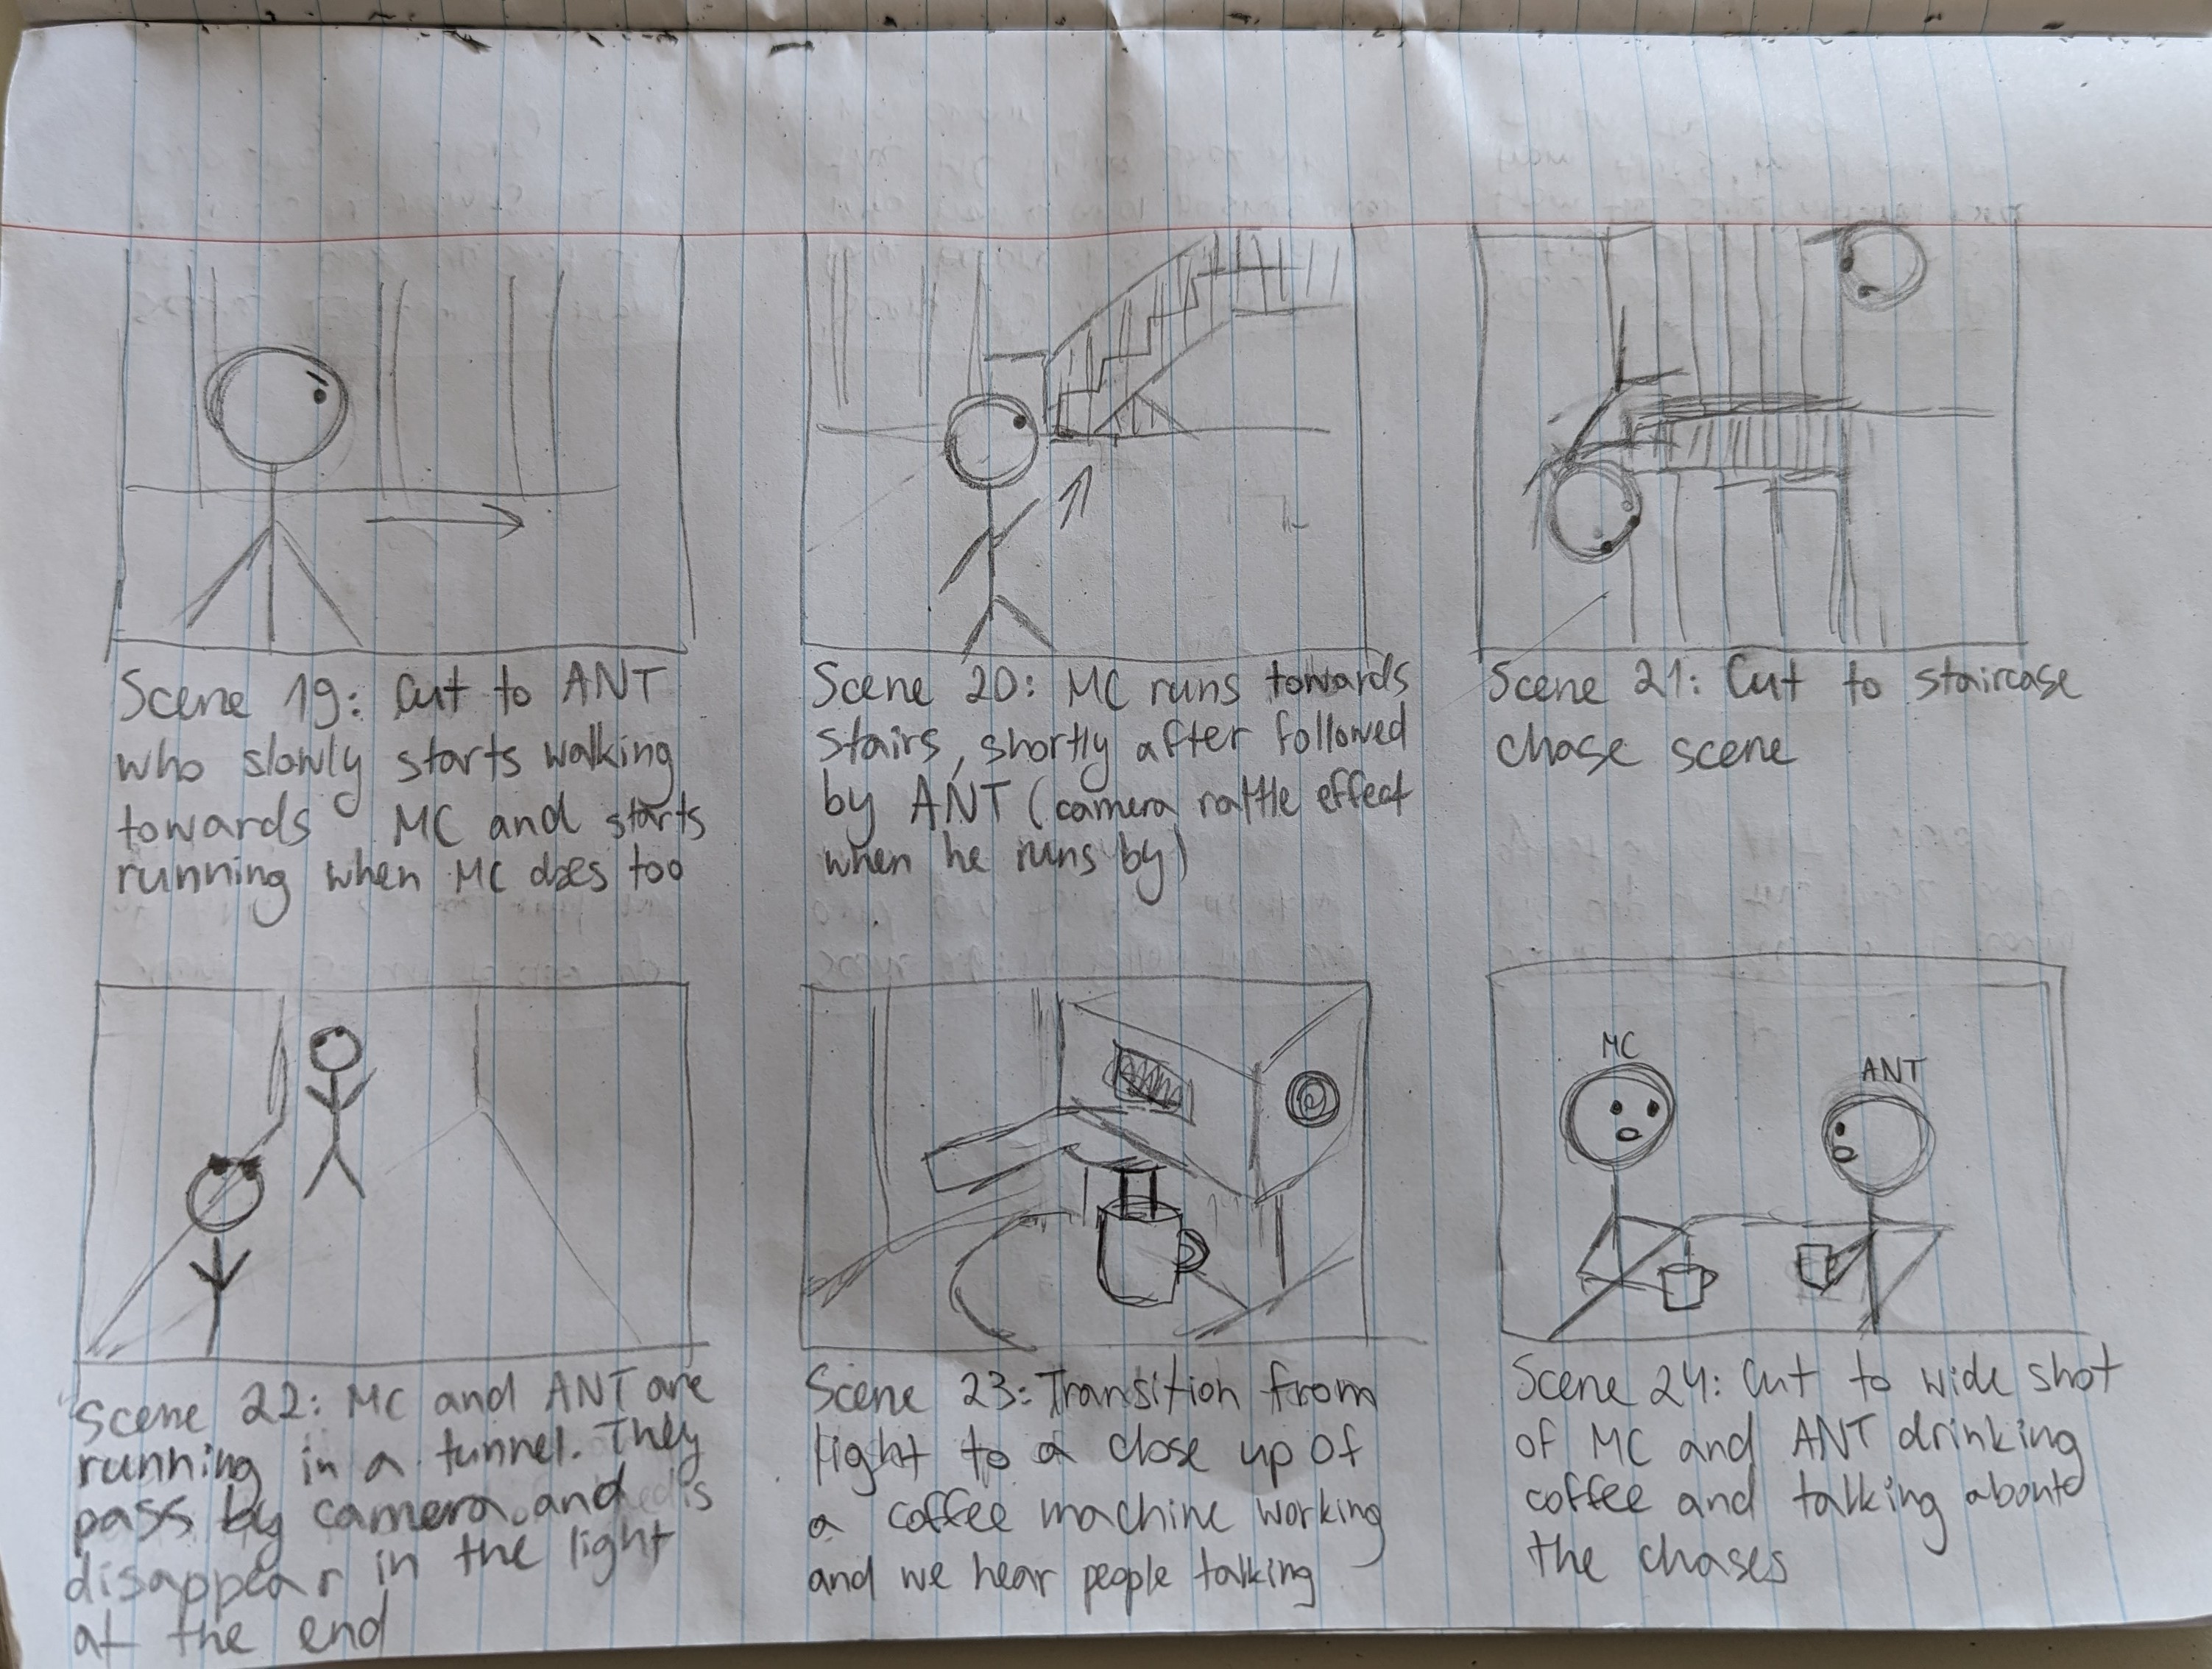 Scene 19: Cut to ANT
who slowly starts walking
towards MC and starts
running when MC does too
Scene 20: MC runs towards
stairs, shortly after followed
by ANT (camera rattle effect
when he runs by)
Scene 21: Cut to staircase
chase scene
Scene 22: MC and ANT are
running in a tunnel. They
pass by camera and
disappear in the light
at the end
Scene 23: Transition from
light to a close up of
a coffee machine working
and we hear people talking
MC
ANT
Scene 24: Cut to wide shot
of MC and ANT drinking
coffee and talking aboute
the chases